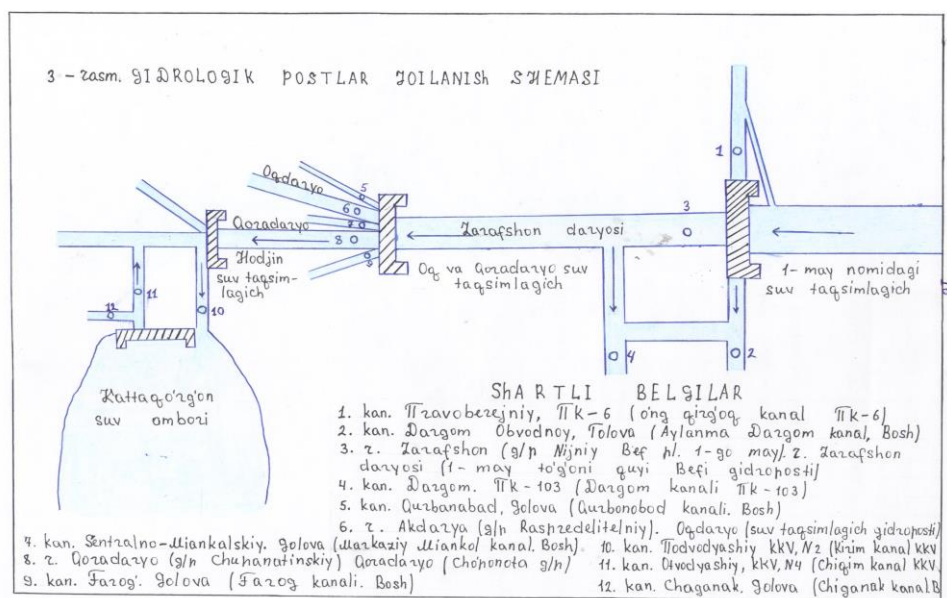 3 - rasm. GIDROLOGIK POSTLAR JOILANISH SHEMASI
1
Oqdaryo
5
6
7
8
9
3
Qoradaryo
Zarafshon daryosi
Hodjin
suv taqsim-
lagich
Oq va Qoradaryo suv
taqsimlagich
1- may nomidagi
suv taqsimlagich
11
12
10
4
2
Kattaqo'rg'on
suv ombori
ShARTLI BELGILAR
1. kan. Pravoberejniy, ПК-6 (o'ng qirg'oq kanal ПК-6)
2. kan. Dargom Obvodnoy, Golova (Aylanma Dargom kanal, Bosh)
3. r. Zarafshon (g/p Nijniy Bef pl. 1-go may). r. Zarafshon
daryosi (1- may to'g'oni quyi Befi gidroposti)
4. kan. Dargom. ПК-103 (Dargom kanali ПК-103)
5. kan. Qurbanabad, Golova (Qurbonobod kanali. Bosh)
6. r. Akdarya (g/p Raspredelitelniy). Oqdaryo (suv taqsimlagich gidroposti)
7. kan. Sentralno-Miankalskiy. Golova (Markaziy Miankol kanal. Bosh).
8. r. Qoradaryo (g/p Chupanatinskiy) Qoradaryo (Cho'ponota g/p)
9. kan. Farog'. Golova (Farog kanali. Bosh)
10. kan. Podvodyashiy KKV, N2 (Kirim kanal KKV
11. kan. Otvodyashiy, KKV, N4 (Chiqim kanal KKV.
12. kan. Chaganak. Golova (Chiganak kanal. B